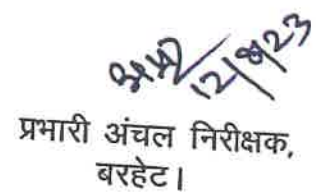 12/8/23
प्रभारी अंचल निरीक्षक,
बरहेट।